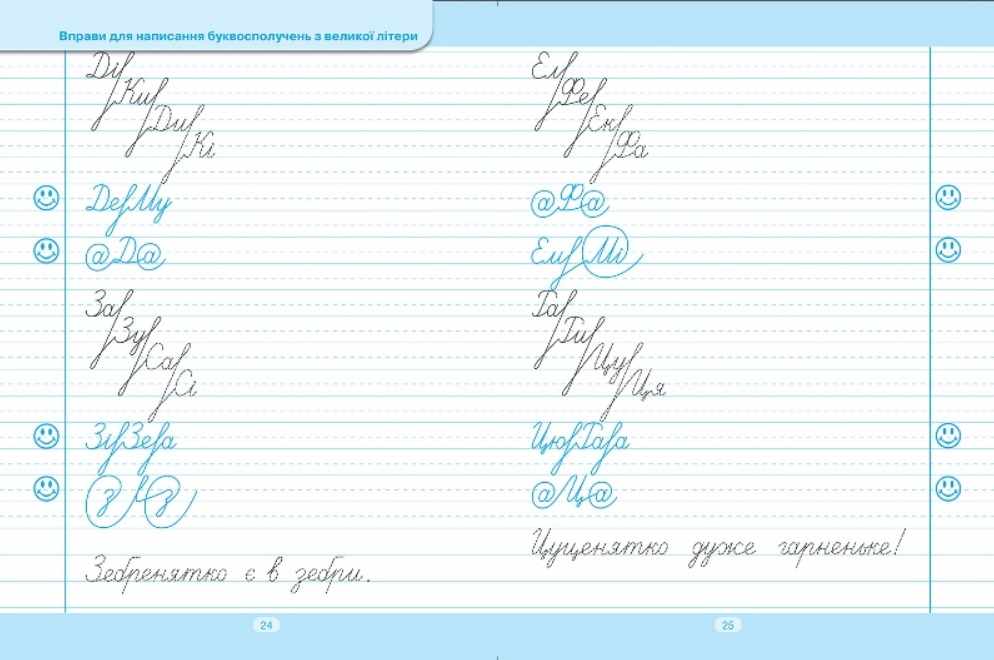 Вправи для написання буквосполучень з великої літери
Ді
Ки
Ди
Кі
За
Зу
Са
Сі
Зебренятко є в зебри.
24
Ел
Фе
Ек
Фа
Га
Ги
Цу
Ця
@Ф@
@Ц@
Цуценятко дуже гарненьке!
25